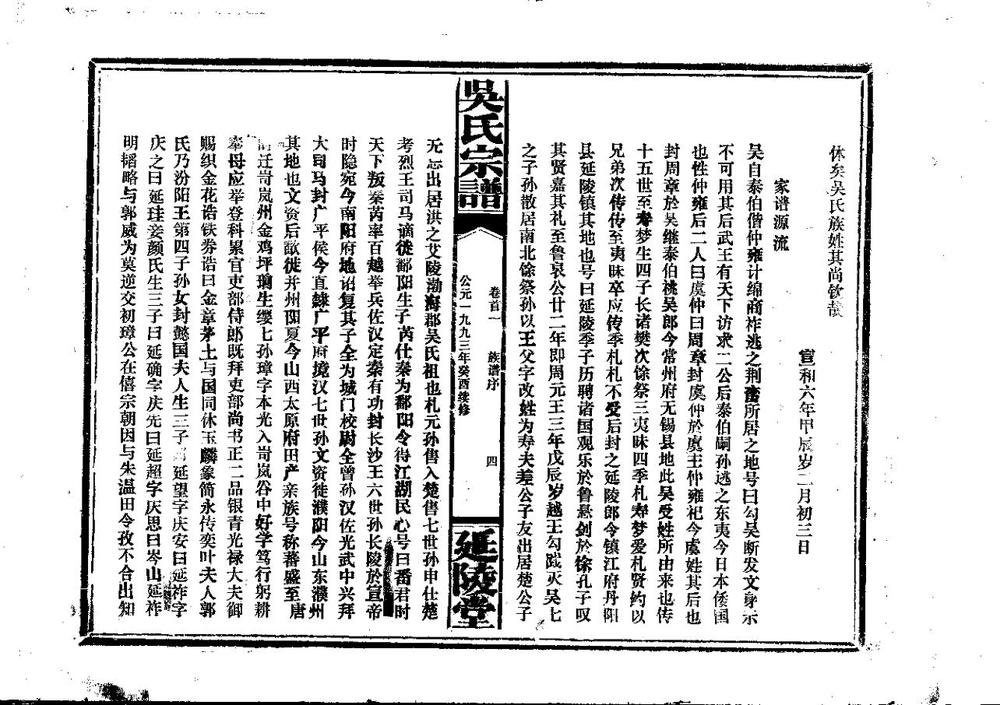 休矣吴氏族姓其尚钦哉
宣和六年甲辰岁二月初三日
家谱源流
吴自泰伯偕仲雍计绵商祚逃之荆蛮所居之地号曰勾吴断发文身示
不可用其后武王有天下访求二公后泰伯嗣孙逃之东夷今日本倭国
也性仲雍后二人曰虞仲曰周章封虞仲於虞主仲雍祀今虞姓其后也
封周章於吴继泰伯桃吴郎今常州府无锡县地此吴受姓所由来也传
十五世至寿梦生四子长诸樊次馀祭三夷昧四季札寿梦爱札贤约以
兄弟次传传至夷昧卒应传季札札不受后封之延陵郎今镇江府丹阳
县延陵镇其地也号曰延陵季子历聘诸国观乐於鲁悬剑於徐孔子叹
其贤嘉其礼至鲁哀公廿二年即周元王三年戊辰岁越王勾践灭吴七
之子孙散居南北馀祭孙以王父字改姓为寿夫差公子友出居楚公子
吳氏宗譜
卷首一 族谱序 四
公元一九九三年癸酉续修
延陵堂
无忌出居洪之艾陵渤海郡吴氏祖也札元孙售入楚售七世孙申仕楚
考烈王司马谪徙鄱阳生子芮仕秦为鄱阳令得江湖民心号曰番君时
天下叛秦芮率百越举兵佐汉定秦有功封长沙王六世孙长陵於宣帝
时隐宛今南阳府地诏复其子全为城门校尉全曾孙汉佐光武中兴拜
大司马封广平候今直隷广平府境汉七世孙文资徙濮阳今山东濮州
其地也文资后歆徙并州阳夏今山西太原府田产亲族号称蕃盛至唐
迁岢岚州金鸡坪瑀生缨七孙璋字本光入岢岚谷中好学笃行躬耕
奉母应举登科累官吏部侍郎既拜吏部尚书正二品银青光禄大夫御
赐织金花诰铁券诰曰金章茅土与国同休玉麟象简永传奕叶夫人郭
氏乃汾阳王第四子孙女封懿国夫人生三子曰延望字庆安曰延祚字
庆之曰延珪妾颜氏生三子曰延确字庆先曰延超字厌思曰岑山延祚
明韬略与郭威为莫逆交初璋公在僖宗朝因与朱温田令孜不合出知